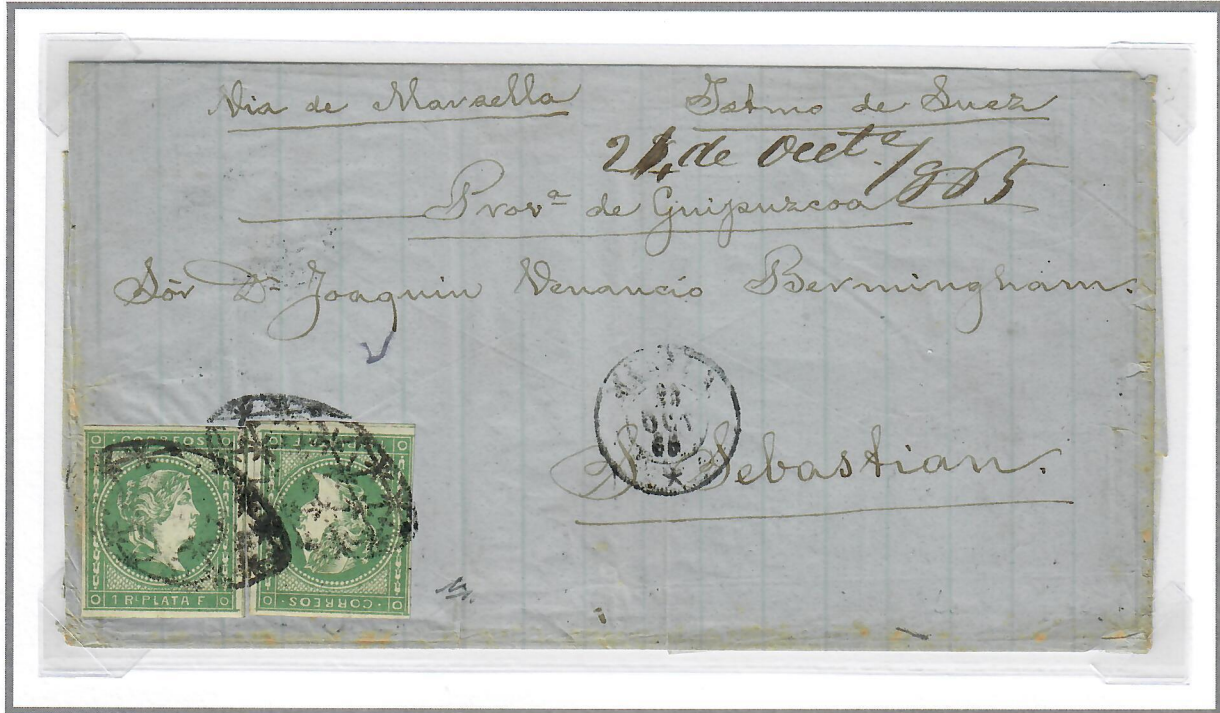 Via de Marsella Istmo de Suez
de Octe. 1865
Prova de Guipuzcoa
Sōr Dn Joaquin Venancio Bermingham.
OCT
S. Sebastian.
CORREOS
1 RL PLATA F
CORREOS